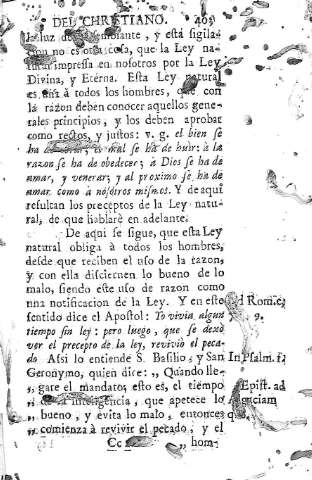 DEL CHRISTIANO. 405
la luz de semblante, y está sigila-
cion no es otra cosa, que la Ley na-
tural impressa en nosotros por la Ley
Divina, y Eterna. Esta Ley natural
es una à todos los hombres, que con
la razon deben conocer aquellos gene-
rales principios, y los deben aprobar
como rectos, y justos: v. g. el bien se
ha de el mal se ha de huir: à la
razon se ha de obedecer; à Dios se ha de
amar, y venerar; y al proximo se ha de
amar como à nosotros mismos. Y de aqui
resultan los preceptos de la Ley natu-
ral, de que hablarè en adelante.
De aqui se sigue, que esta Ley
natural obliga à todos los hombres,
desde que reciben el uso de la razon,
y con ella disciernen lo bueno de lo
malo, siendo este uso de razon como
una notificacion de la Ley. Y en este
sentido dice el Apostol: Yo vivia algun
tiempo sin ley: pero luego, que se dexò
ver el precepto de la ley, revivió el peca-
do Assi lo entiende S. Basilio, y San
Geronymo, quien dice: „ Quando lle-
„ gare el mandato, esto es, el tiempo
„ de la inteligencia, que apetece lo
„ bueno, y evita lo malo, entonces
„ comienza à revivir el pecado, y el
Cc „ hom-
d Rom. c.
9.
In Psalm. 1.
Epist. ad
que,